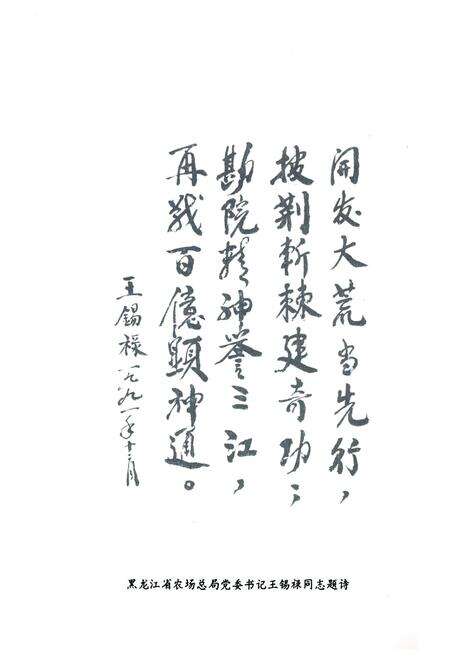 开发大荒当先行，
披荆斩棘建奇功；
勘院精神誉三江，
再战百億顕神通。
王锡禄一九九一年十二月
黑龙江省农场总局党委书记王锡禄同志题诗